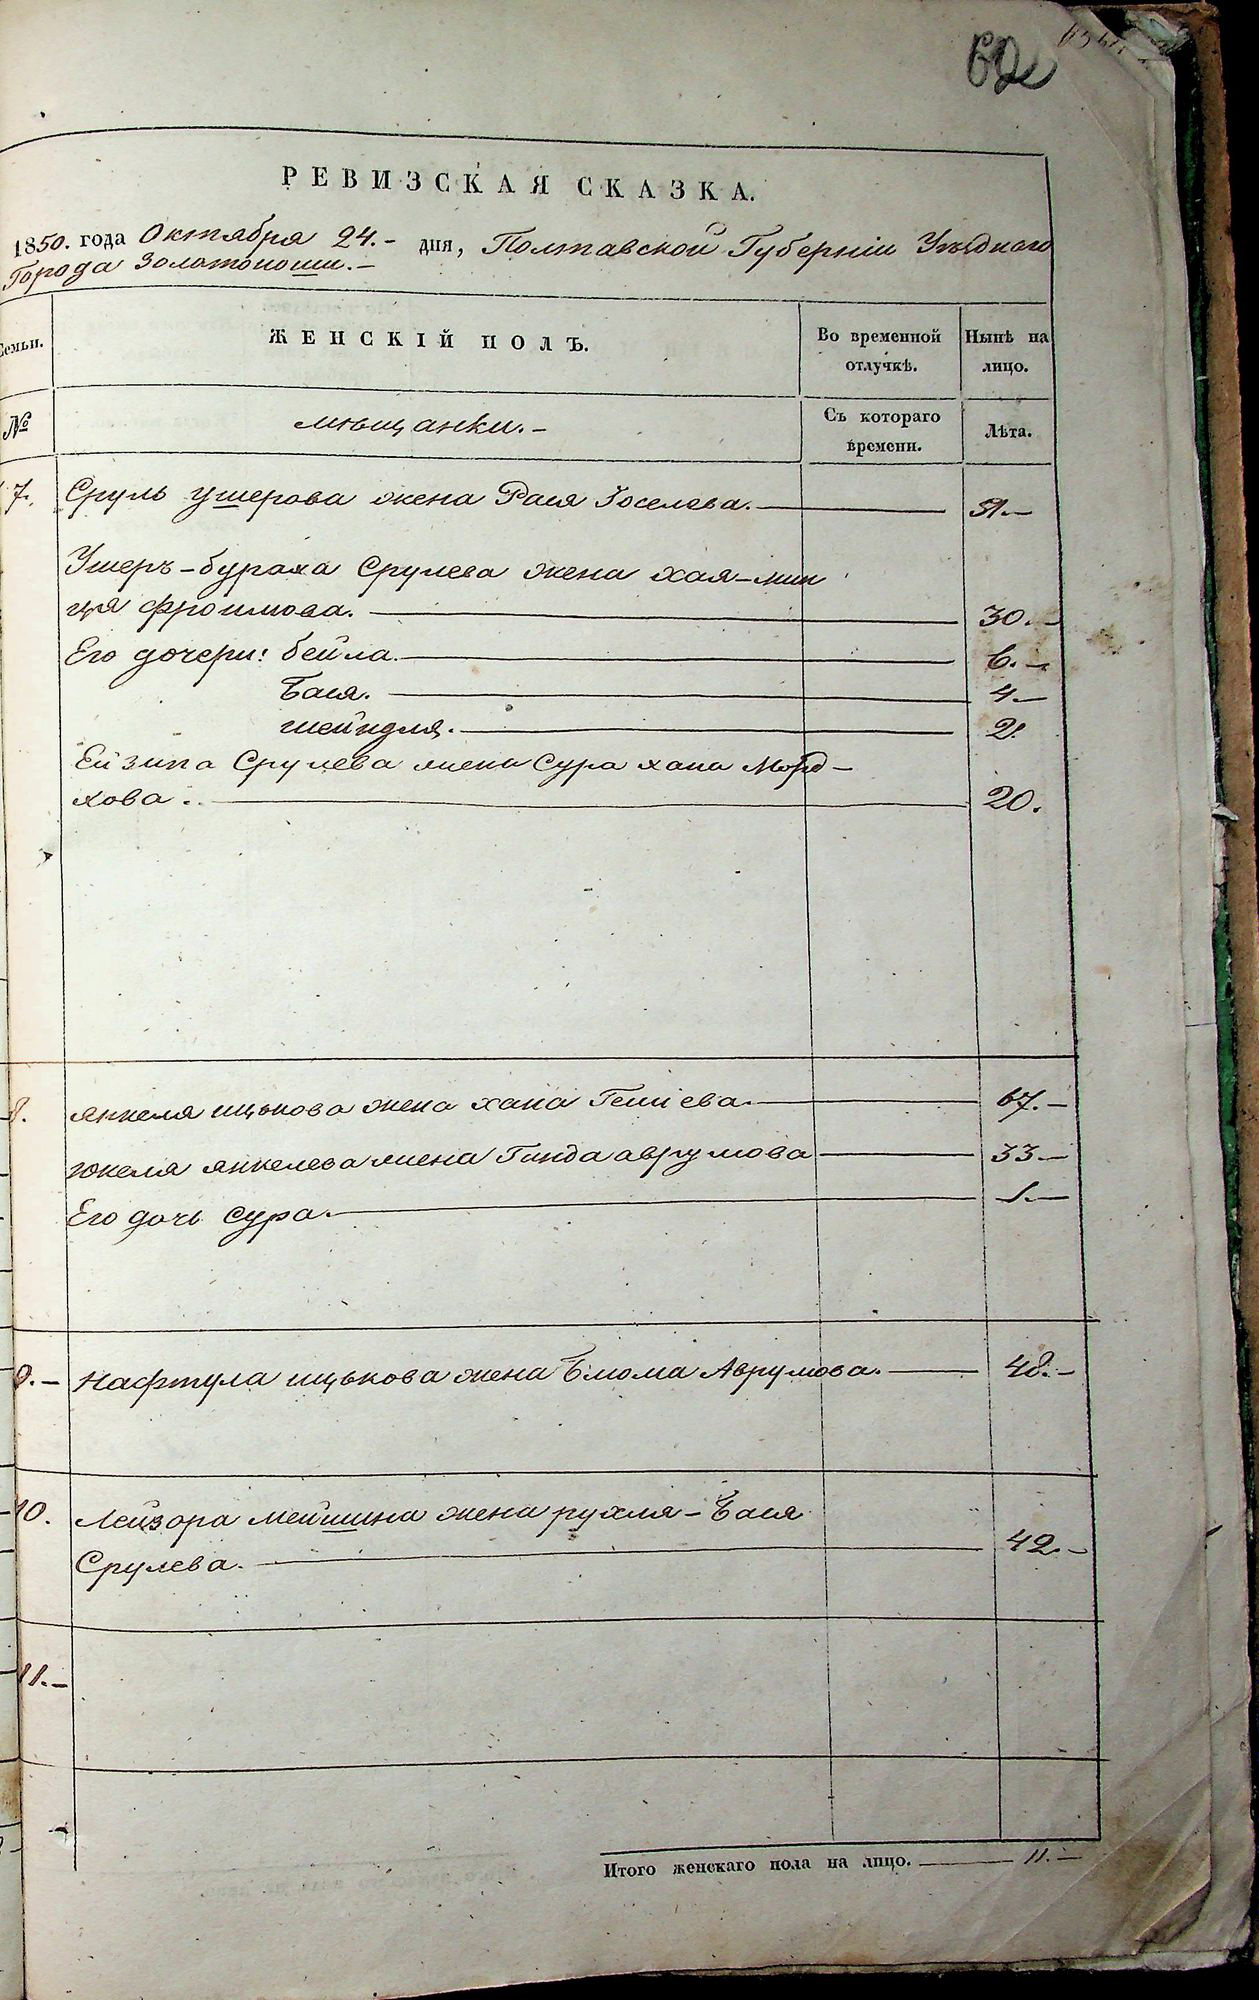 62
РЕВИЗСКАЯ СКАЗКА.
1850. года Октября 24.- дня, Полтавской Губерніи Уѣзднаго
Города Золотоноши.-
Семьи. ЖЕНСКІЙ ПОЛЪ. Во временной отлучкѣ. Нынѣ на лицо.
№ мѣщанки.- Съ котораго времени. Лѣта.
7. Сруль Ушерова жена Рася Іоселева. 51.-
Ушеръ-бураха Срулева жена хая-мин
ця Фроимова. 30.-
Его дочери: бейла. 6.-
Бася. 4-
шейндля. 2.
Ейзина Срулева жена Сура хана Морд-
хова. 20.
8. Янкеля ицькова жена хана Гешіева. 67.-
Іокеля янкелева жена Гинда аврумова 33.-
Его дочь Сура. 1.-
9.- Нафтула ицькова жена Блюма Аврумова. 48.-
10. Лейзора мейшина жена рухля-Бася
Срулева. 42.-
11.-
Итого женскаго пола на лицо. 11.-